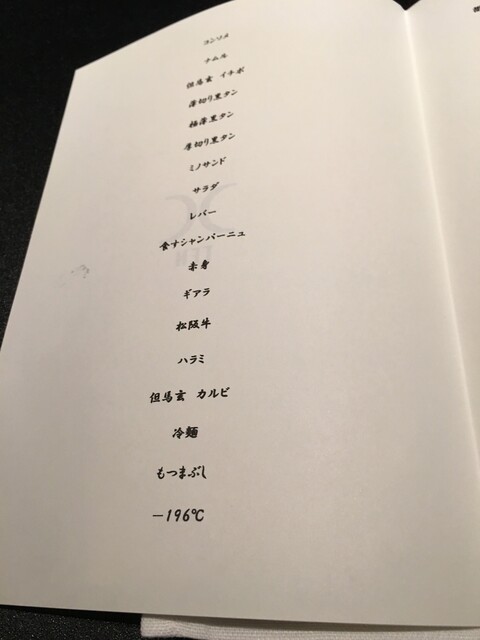 コンソメ
ナムル
但馬玄 イチボ
薄切り黒タン
極薄黒タン
厚切り黒タン
ミノサンド
サラダ
レバー
食すシャンパーニュ
赤身
ギアラ
松阪牛
ハラミ
但馬玄 カルビ
冷麺
もつまぶし
－196℃